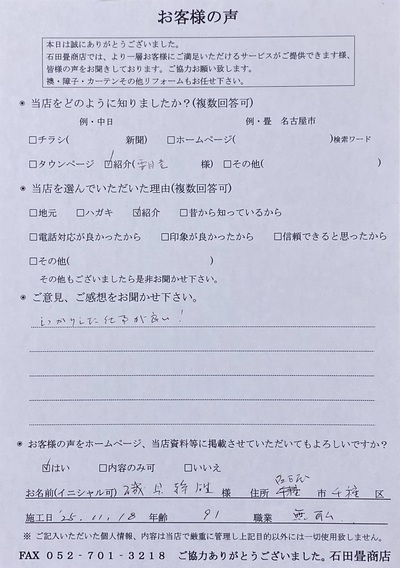 お客様の声
本日は誠にありがとうございました。
石田畳商店では、より一層お客様にご満足いただけるサービスがご提供できます様、
皆様の声をお聞きしております。ご協力お願い致します。
襖・障子・カーテンその他リフォームもお任せ下さい。
◉ 当店をどのように知りましたか?(複数回答可)
例・中日 例・畳 名古屋市
□チラシ( 新聞) □ホームページ( )検索ワード
□タウンページ ☑紹介( 様) □その他( )
◉ 当店を選んでいただいた理由(複数回答可)
□地元 □ハガキ ☑紹介 □昔から知っているから
□電話対応が良かったから □印象が良かったから □信頼できると思ったから
□その他( )
その他もございましたら是非お聞かせ下さい。
◉ ご意見、ご感想をお聞かせ下さい。
しっかりした仕事が良い!
◉ お客様の声をホームページ、当店資料等に掲載させていただいてもよろしいですか?
☑はい □内容のみ可 □いいえ
お名前(イニシャル可) 様 住所 名古屋 市 千種 区
施工日 '25.11.18 年齢 91 職業 無職
※ ご記入いただいた個人情報、内容は当店で厳重に管理し上記目的以外には一切使用致しません。
FAX 052-701-3218 ご協力ありがとうございました。石田畳商店